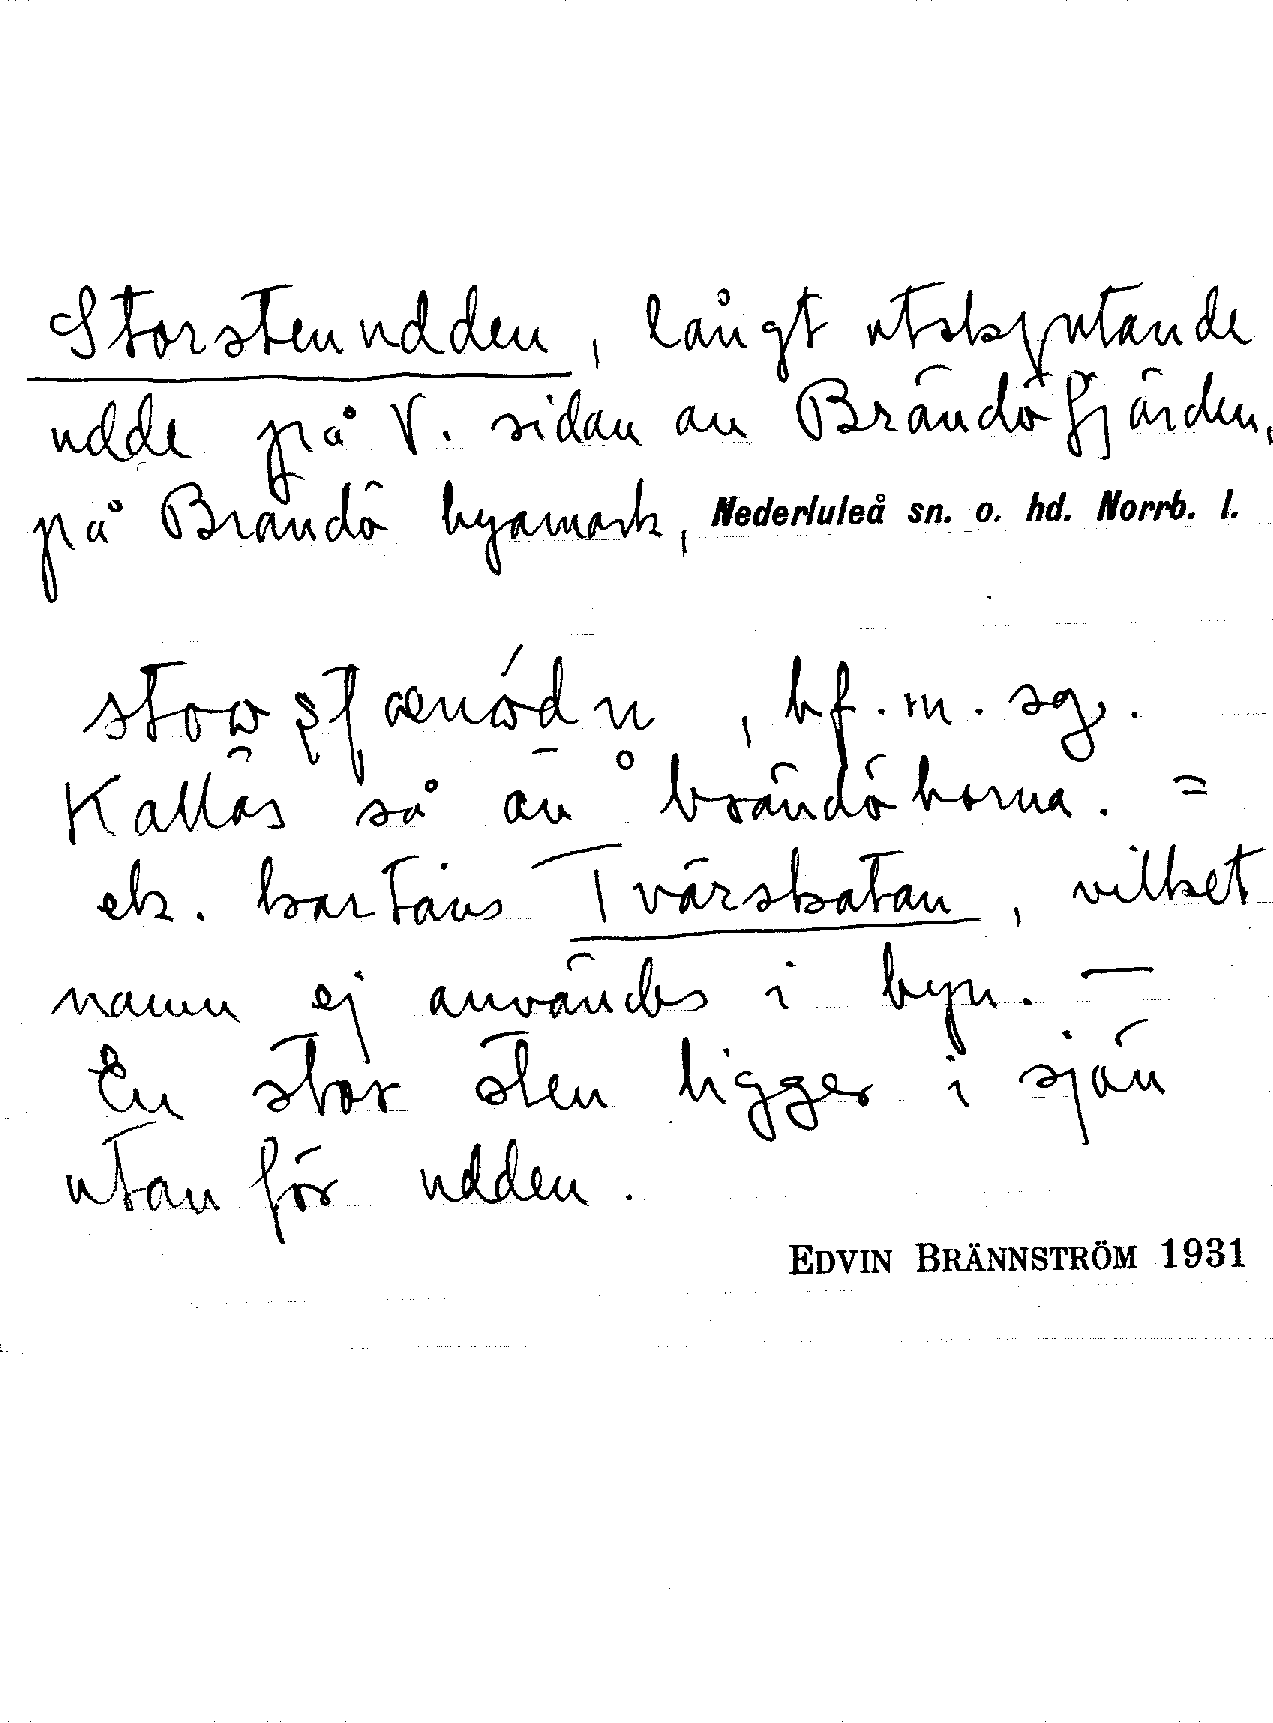 Storstenudden, långt utskjutande
udde på V. sidan av Brändöfjärden,
på Brändö byamark, Nederluleå sn. o. hd. Norrb. l.
bf. m. sg.
Kallas så av brändöborna. =
ek. kartans Tvärskatan, vilket
namn ej användes i byn. —
En stor sten ligger i sjön
utanför udden.
EDVIN BRÄNNSTRÖM 1931